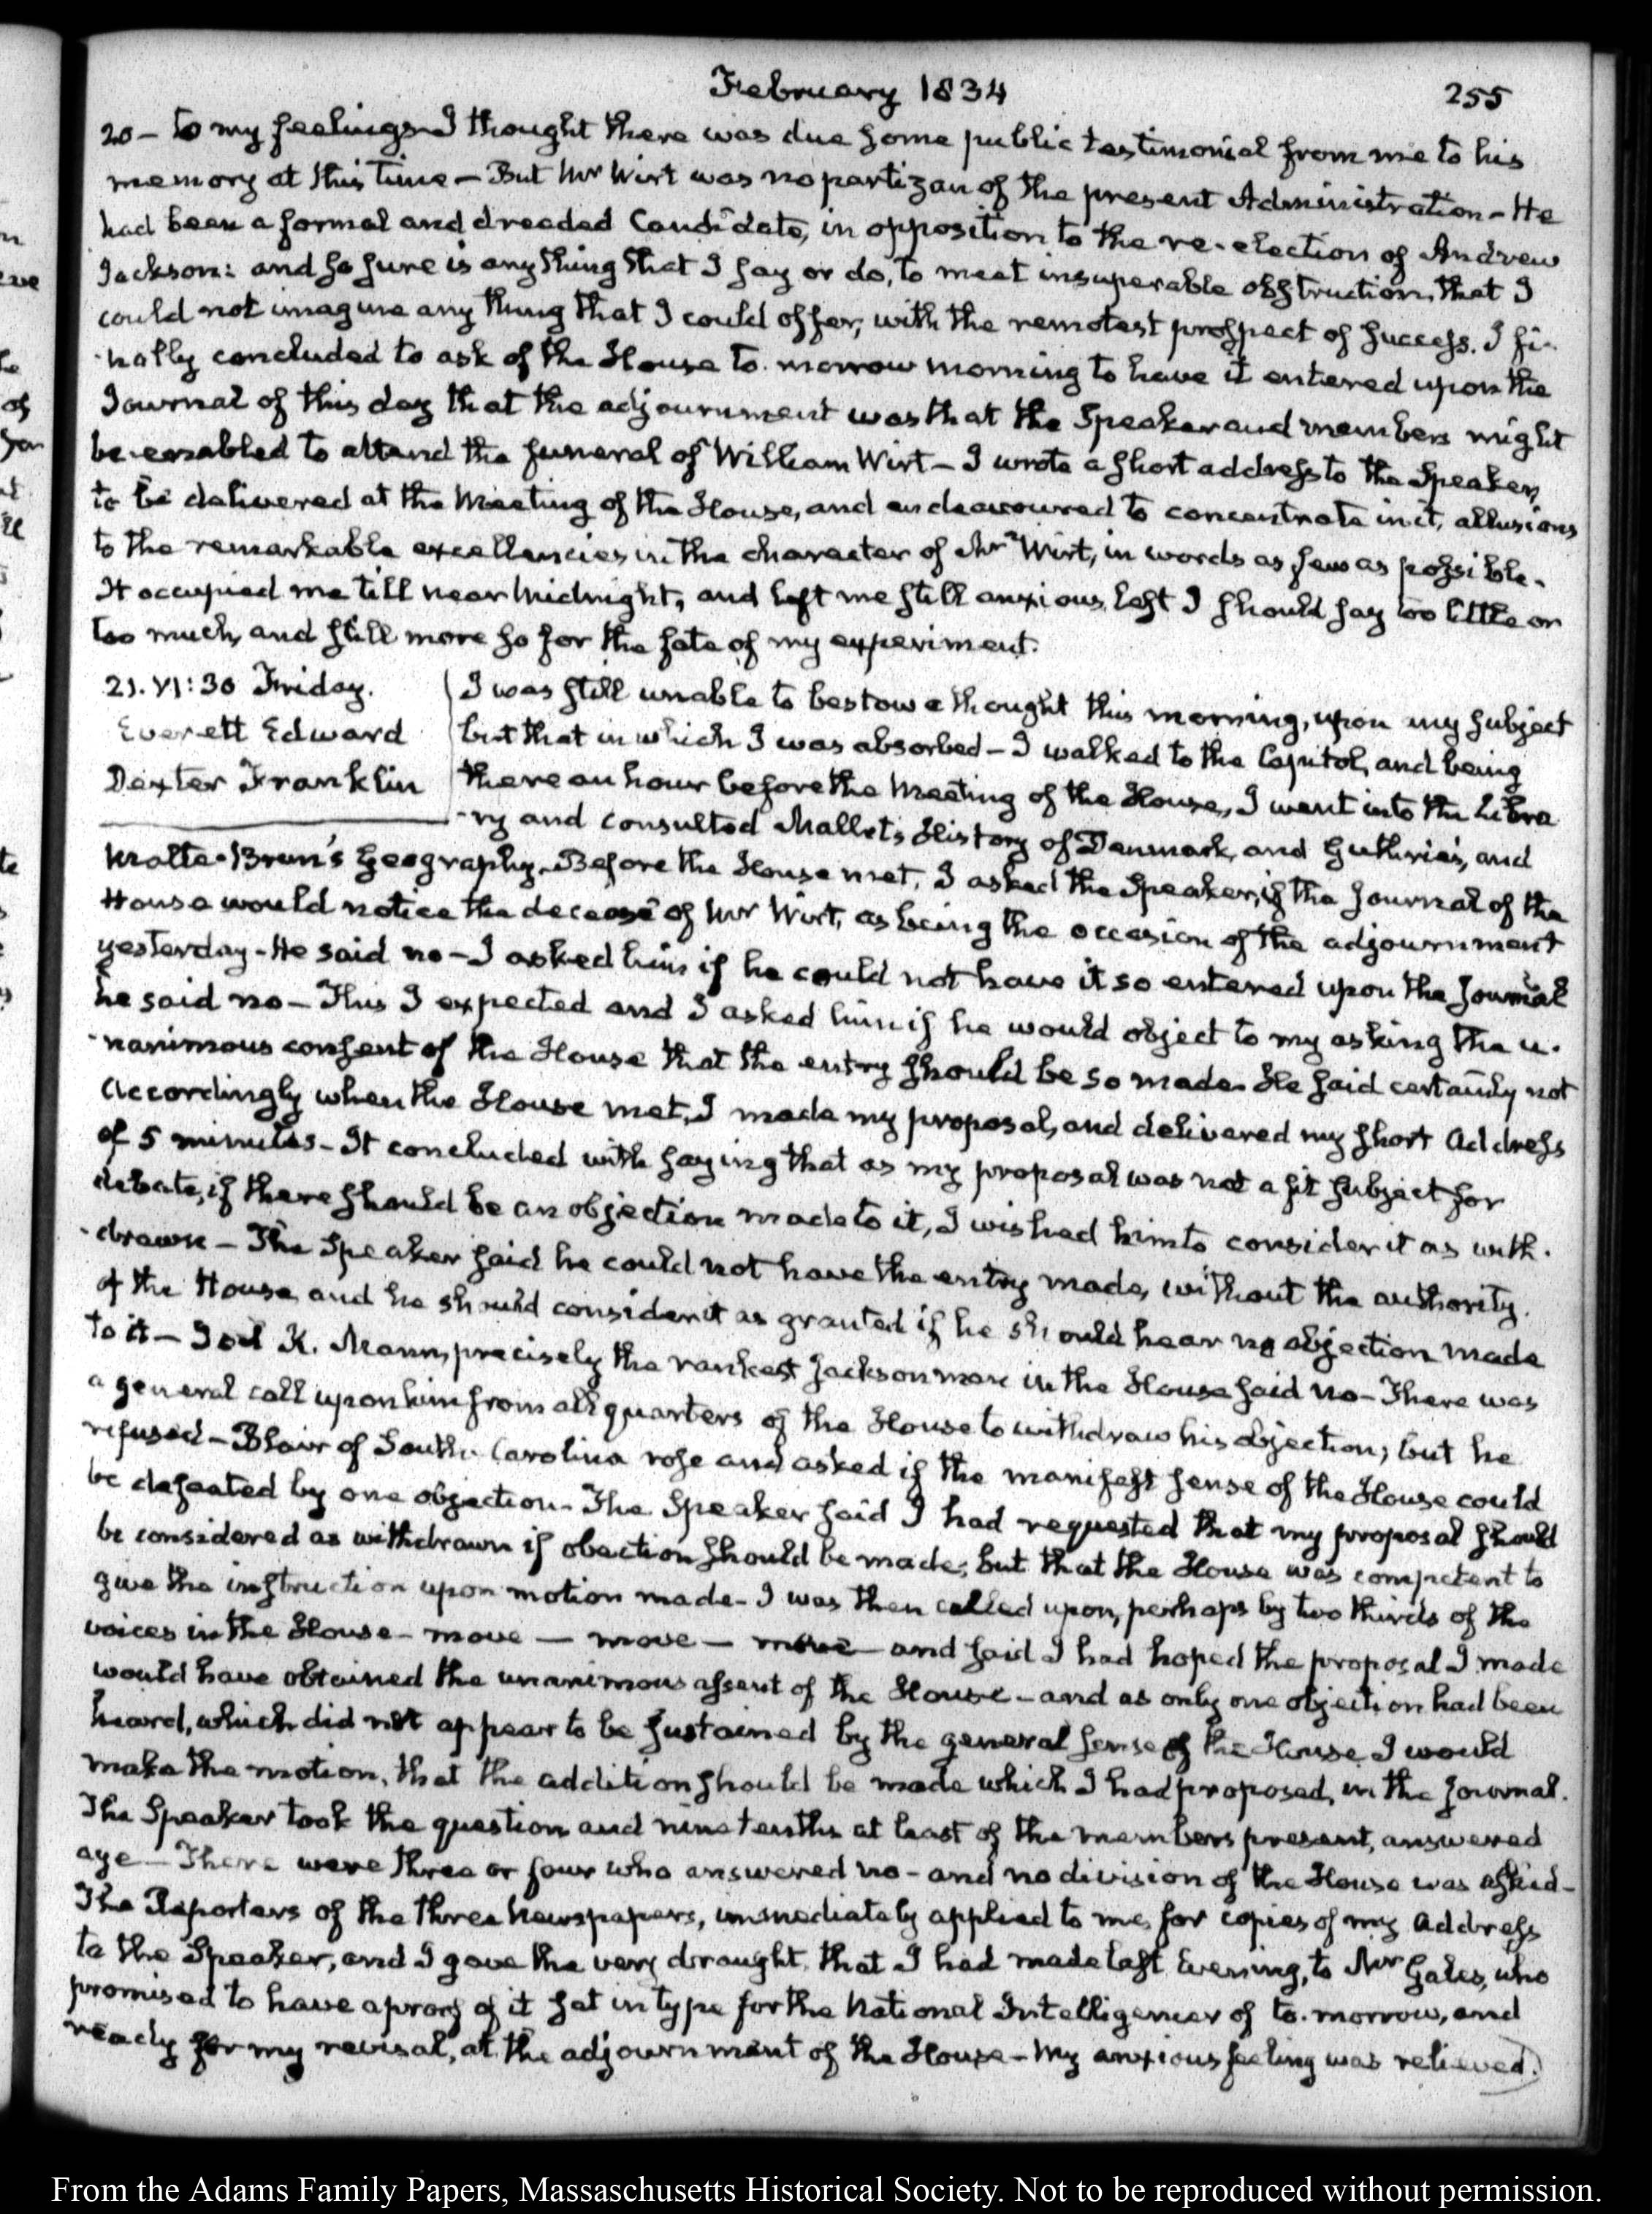 February 1834
255
20 – to my feelings I thought there was due some public testimonial from me to his
memory at this time – But Mr Wirt was no partizan of the present Administration – He
had been a formal and dreaded Candidate, in opposition to the re-election of Andrew
Jackson: and so sure is any thing that I say or do, to meet insuperable obstruction, that I
could not imagine any thing that I could offer, with the remotest prospect of success. I fi-
-nally concluded to ask of the House to-morrow morning to have it entered upon the
Journal of this day that the adjournment was that the Speaker and members might
be enabled to attend the funeral of William Wirt – I wrote a short address to the Speaker,
to be delivered at the Meeting of the House, and endeavoured to concentrate in it, allusions
to the remarkable excellencies in the character of Mr Wirt, in words as few as possible.
It occupied me till near Midnight, and left me still anxious lest I should say too little or
too much, and still more so for the fate of my experiment.
21. VI:30 Friday.
Everett Edward
Dexter Franklin
I was still unable to bestow a thought this morning, upon any subject
but that in which I was absorbed – I walked to the Capitol, and being
there an hour before the Meeting of the House, I went into the Libra
-ry and consulted Mallet's History of Denmark, and Guthrie's, and
Malte-Brun's Geography. Before the House met, I asked the Speaker, if the Journal of the
House would notice the decease of Mr Wirt, as being the occasion of the adjournment
yesterday – He said no – I asked him if he could not have it so entered upon the Journal
he said no – This I expected and I asked him if he would object to my asking the u-
-nanimous consent of the House that the entry should be so made. He said certainly not
Accordingly when the House met, I made my proposal, and delivered my short Address
of 5 minutes – It concluded with saying that as my proposal was not a fit subject for
debate, if there should be an objection made to it, I wished him to consider it as with-
-drawn – The Speaker said he could not have the entry made, without the authority
of the House, and he should consider it as granted if he should hear no objection made
to it – Joel K. Mann, precisely the rankest Jackson man in the House said no – There was
a general call upon him from all quarters of the House to withdraw his objection; but he
refused – Blair of South-Carolina rose and asked if the manifest sense of the House could
be defeated by one objection – The Speaker said I had requested that my proposal should
be considered as withdrawn if obection should be made; but that the House was competent to
give the instruction upon motion made – I was then called upon, perhaps by two thirds of the
voices in the House – move – move – move – and said I had hoped the proposal I made
would have obtained the unanimous assent of the House – and as only one objection had been
heard, which did not appear to be sustained by the general sense of the House I would
make the motion, that the addition should be made which I had proposed, in the Journal.
The Speaker took the question and nine tenths at least of the members present, answered
aye – There were three or four who answered no – and no division of the House was asked –
The Reporters of the three Newspapers, immediately applied to me, for copies of my Address
to the Speaker, and I gave the very draught, that I had made last Evening, to Mr Gales, who
promised to have a proof of it set in type for the National Intelligencer of to-morrow, and
ready for my revisal, at the adjournment of the House – My anxious feeling was relieved.
From the Adams Family Papers, Massachusetts Historical Society. Not to be reproduced without permission.